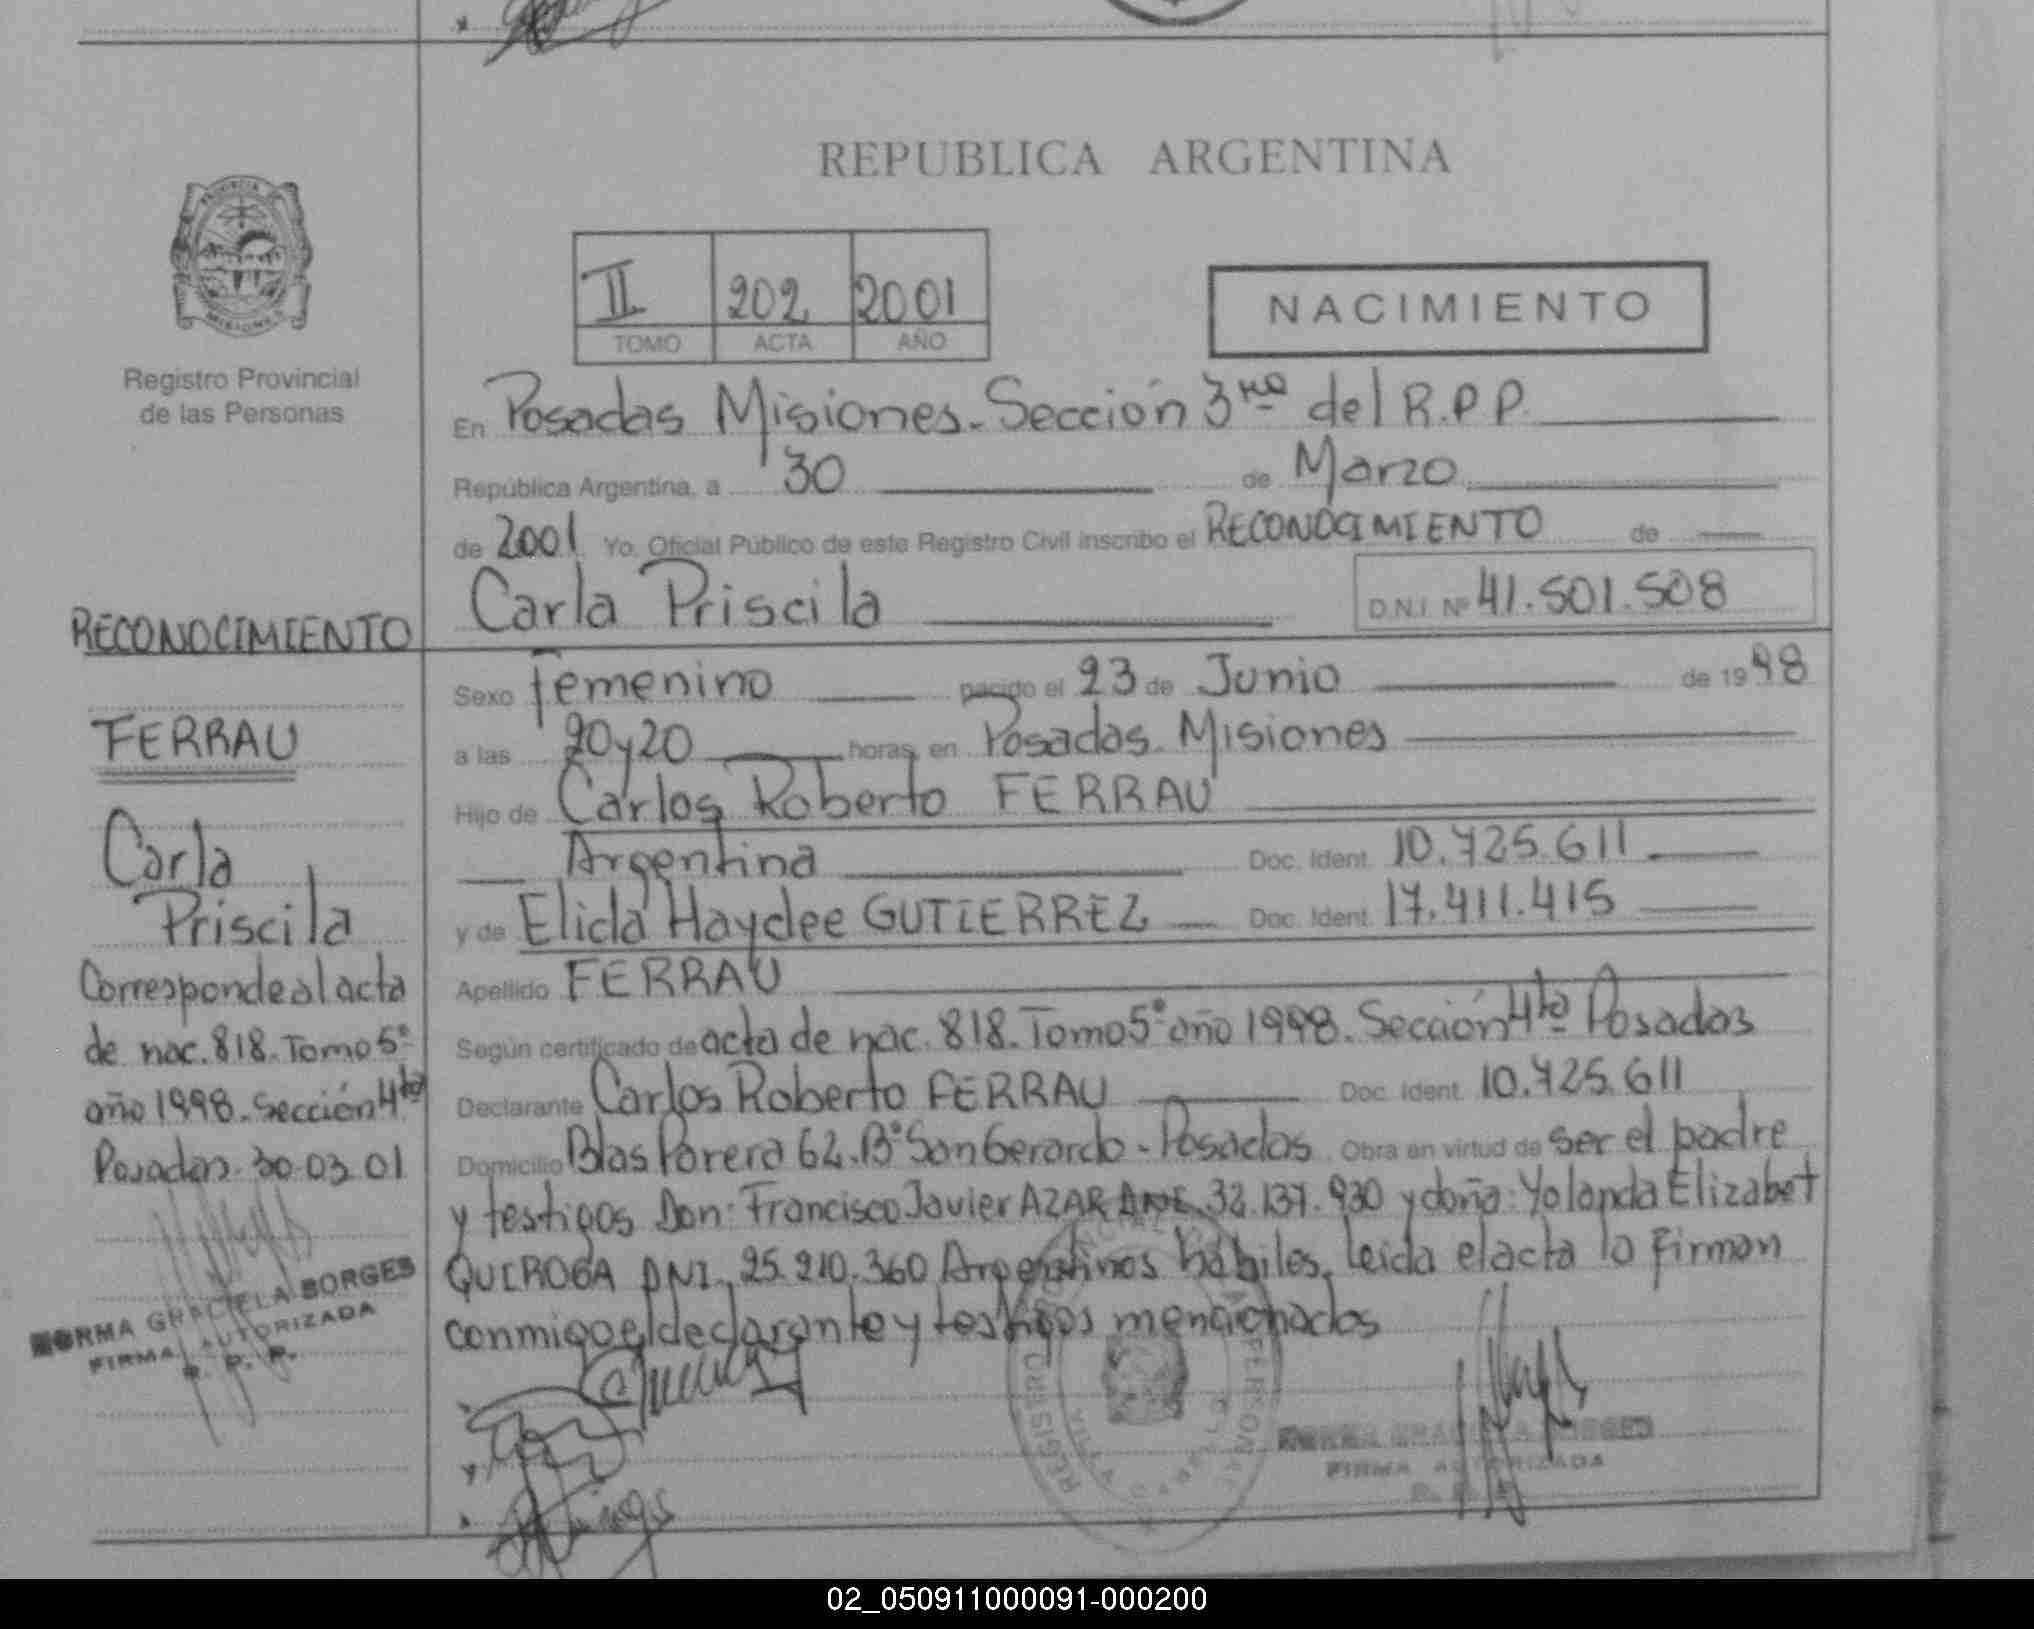 REPUBLICA ARGENTINA
PROVINCIA DE
MISIONES
Registro Provincial
de las Personas
II 202 2001
TOMO ACTA AÑO
NACIMIENTO
En Posadas Misiones. Sección 3ra del R.P.P.
República Argentina, a 30 de Marzo
de 2001 Yo. Oficial Público de este Registro Civil inscribo el RECONOCIMIENTO de
Carla Priscila D.N.I. Nº 41.501.508
Sexo Femenino nacido el 23 de Junio de 1998
a las 20y20 horas en Posadas. Misiones
Hijo de Carlos Roberto FERRAU
Argentina Doc. Ident. 10.725.611
y de Elida Haydee GUTIERREZ Doc. Ident. 17.411.415
Apellido FERRAU
Según certificado de acta de nac. 818. Tomo 5º año 1998. Sección 4ta Posadas
Declarante Carlos Roberto FERRAU Doc. Ident. 10.725.611
Domicilio Blas Parera 62. Bº San Gerardo - Posadas Obra en virtud de ser el padre
y testigos Don: Francisco Javier AZAR 32.137.930 y doña: Yolanda Elizabet
QUIROGA DNI. 25.210.360 Argentinos hábiles, leida el acta lo firman
conmigo el declarante y testigos mencionados
FIRMA AUTORIZADA
RECONOCIMIENTO
FERRAU
Carla
Priscila
Corresponde al acta
de nac. 818. Tomo 5º
año 1998. Sección 4ta
Posadas. 30-03-01
NORMA GRACIELA BORGES
FIRMA AUTORIZADA
R. P. P.
02_050911000091-000200